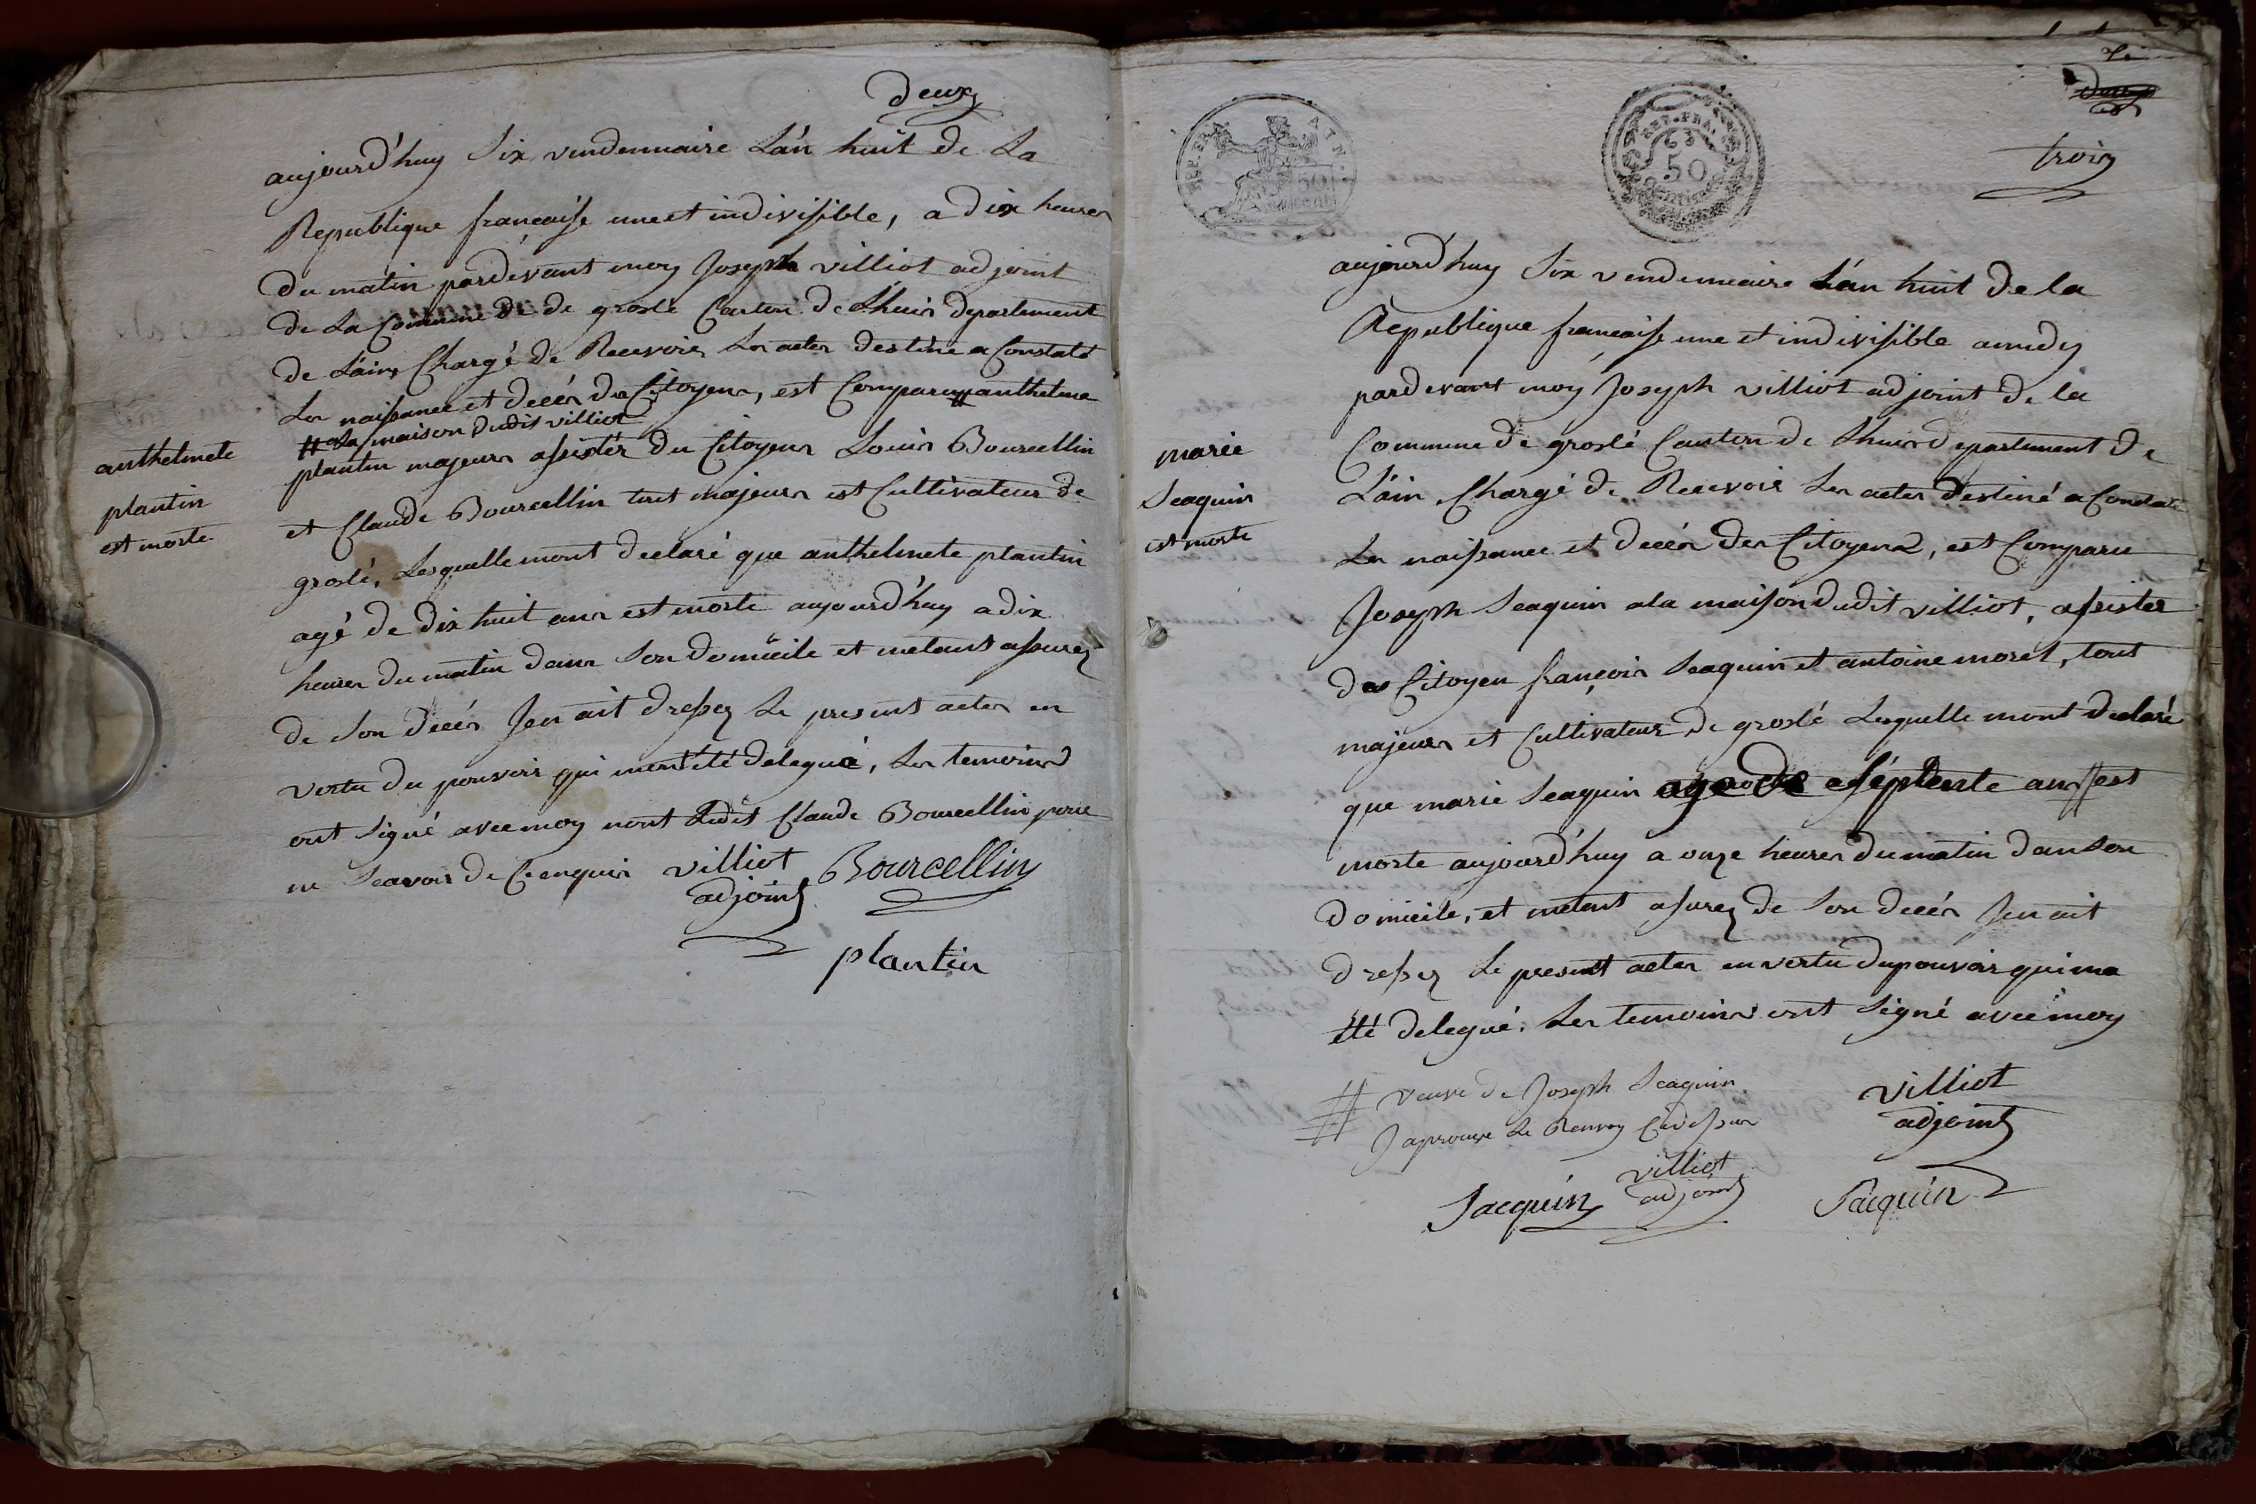 deux
aujourd'huy Six vendemiaire L'an huit de La
Republique francaisse une et indivisible, a dix heures
du matin pardevant moy Joseph villiot adjoint
de La Commune de de groslé Canton de Lhuis departement
de L'ain, Chargé de Recevoir Les actes destiné a Constaté
Les naissance et decés des Citoyens, est Comparu # anthelme
# a La maison dudit villiot
plantin majeurs assistér du Citoyens Louis Bourcellin
et Claude Bourcellin tout majeurs est Cultivateur de
groslé, Lesquelle mont declaré que anthelmete plantin
agé de dix huit ans est morte aujourd'huy a dix
heures du matin dans Son domicile et metant assurez
de Son decés Jen ait dressez Le present actes en
vertu du pouvoir qui mont été delegué, Les temoins
ont Signé avec moy nont Ledit Claude Bourcellin pour
ne Scavoir de Ce enquis villiot Bourcellin
adjoint
plantin
anthelmete
plantin
est morte
troix
aujourd'huy Six vendemiaire L'an huit de la
Republique francaisse une et indivisible a midy
pardevant moy Joseph villiot adjoint de la
Commune de groslé Canton de Lhuis departement de
L'ain, Chargé de Recevoir Les actes destiné a Constaté
Les naissance et decés des Citoyens, est Comparu
Joseph Seaquin a la maison dudit villiot, assister
des Citoyen françois Seaquin et antoine moret, tout
majeurs et Cultivateur de groslé Lesquelle mont declaré
que marie Seaquin age de séptente ans # est
morte aujourd'huy a onze heures du matin dans Son
domicile, et metant asurez de Son decés Jen ait
dressez Le present actes en vertu du pouvoir qui ma
été delegué. Les temoins ont Signé avec moy
# veuve de Joseph Seaquin
Japrouve Le Renvoy Cidessus
villiot
adjoint
villiot
adjoint
Jacquin
Sacquin
marie
Seaquin
est morte
REP. FRA.
50